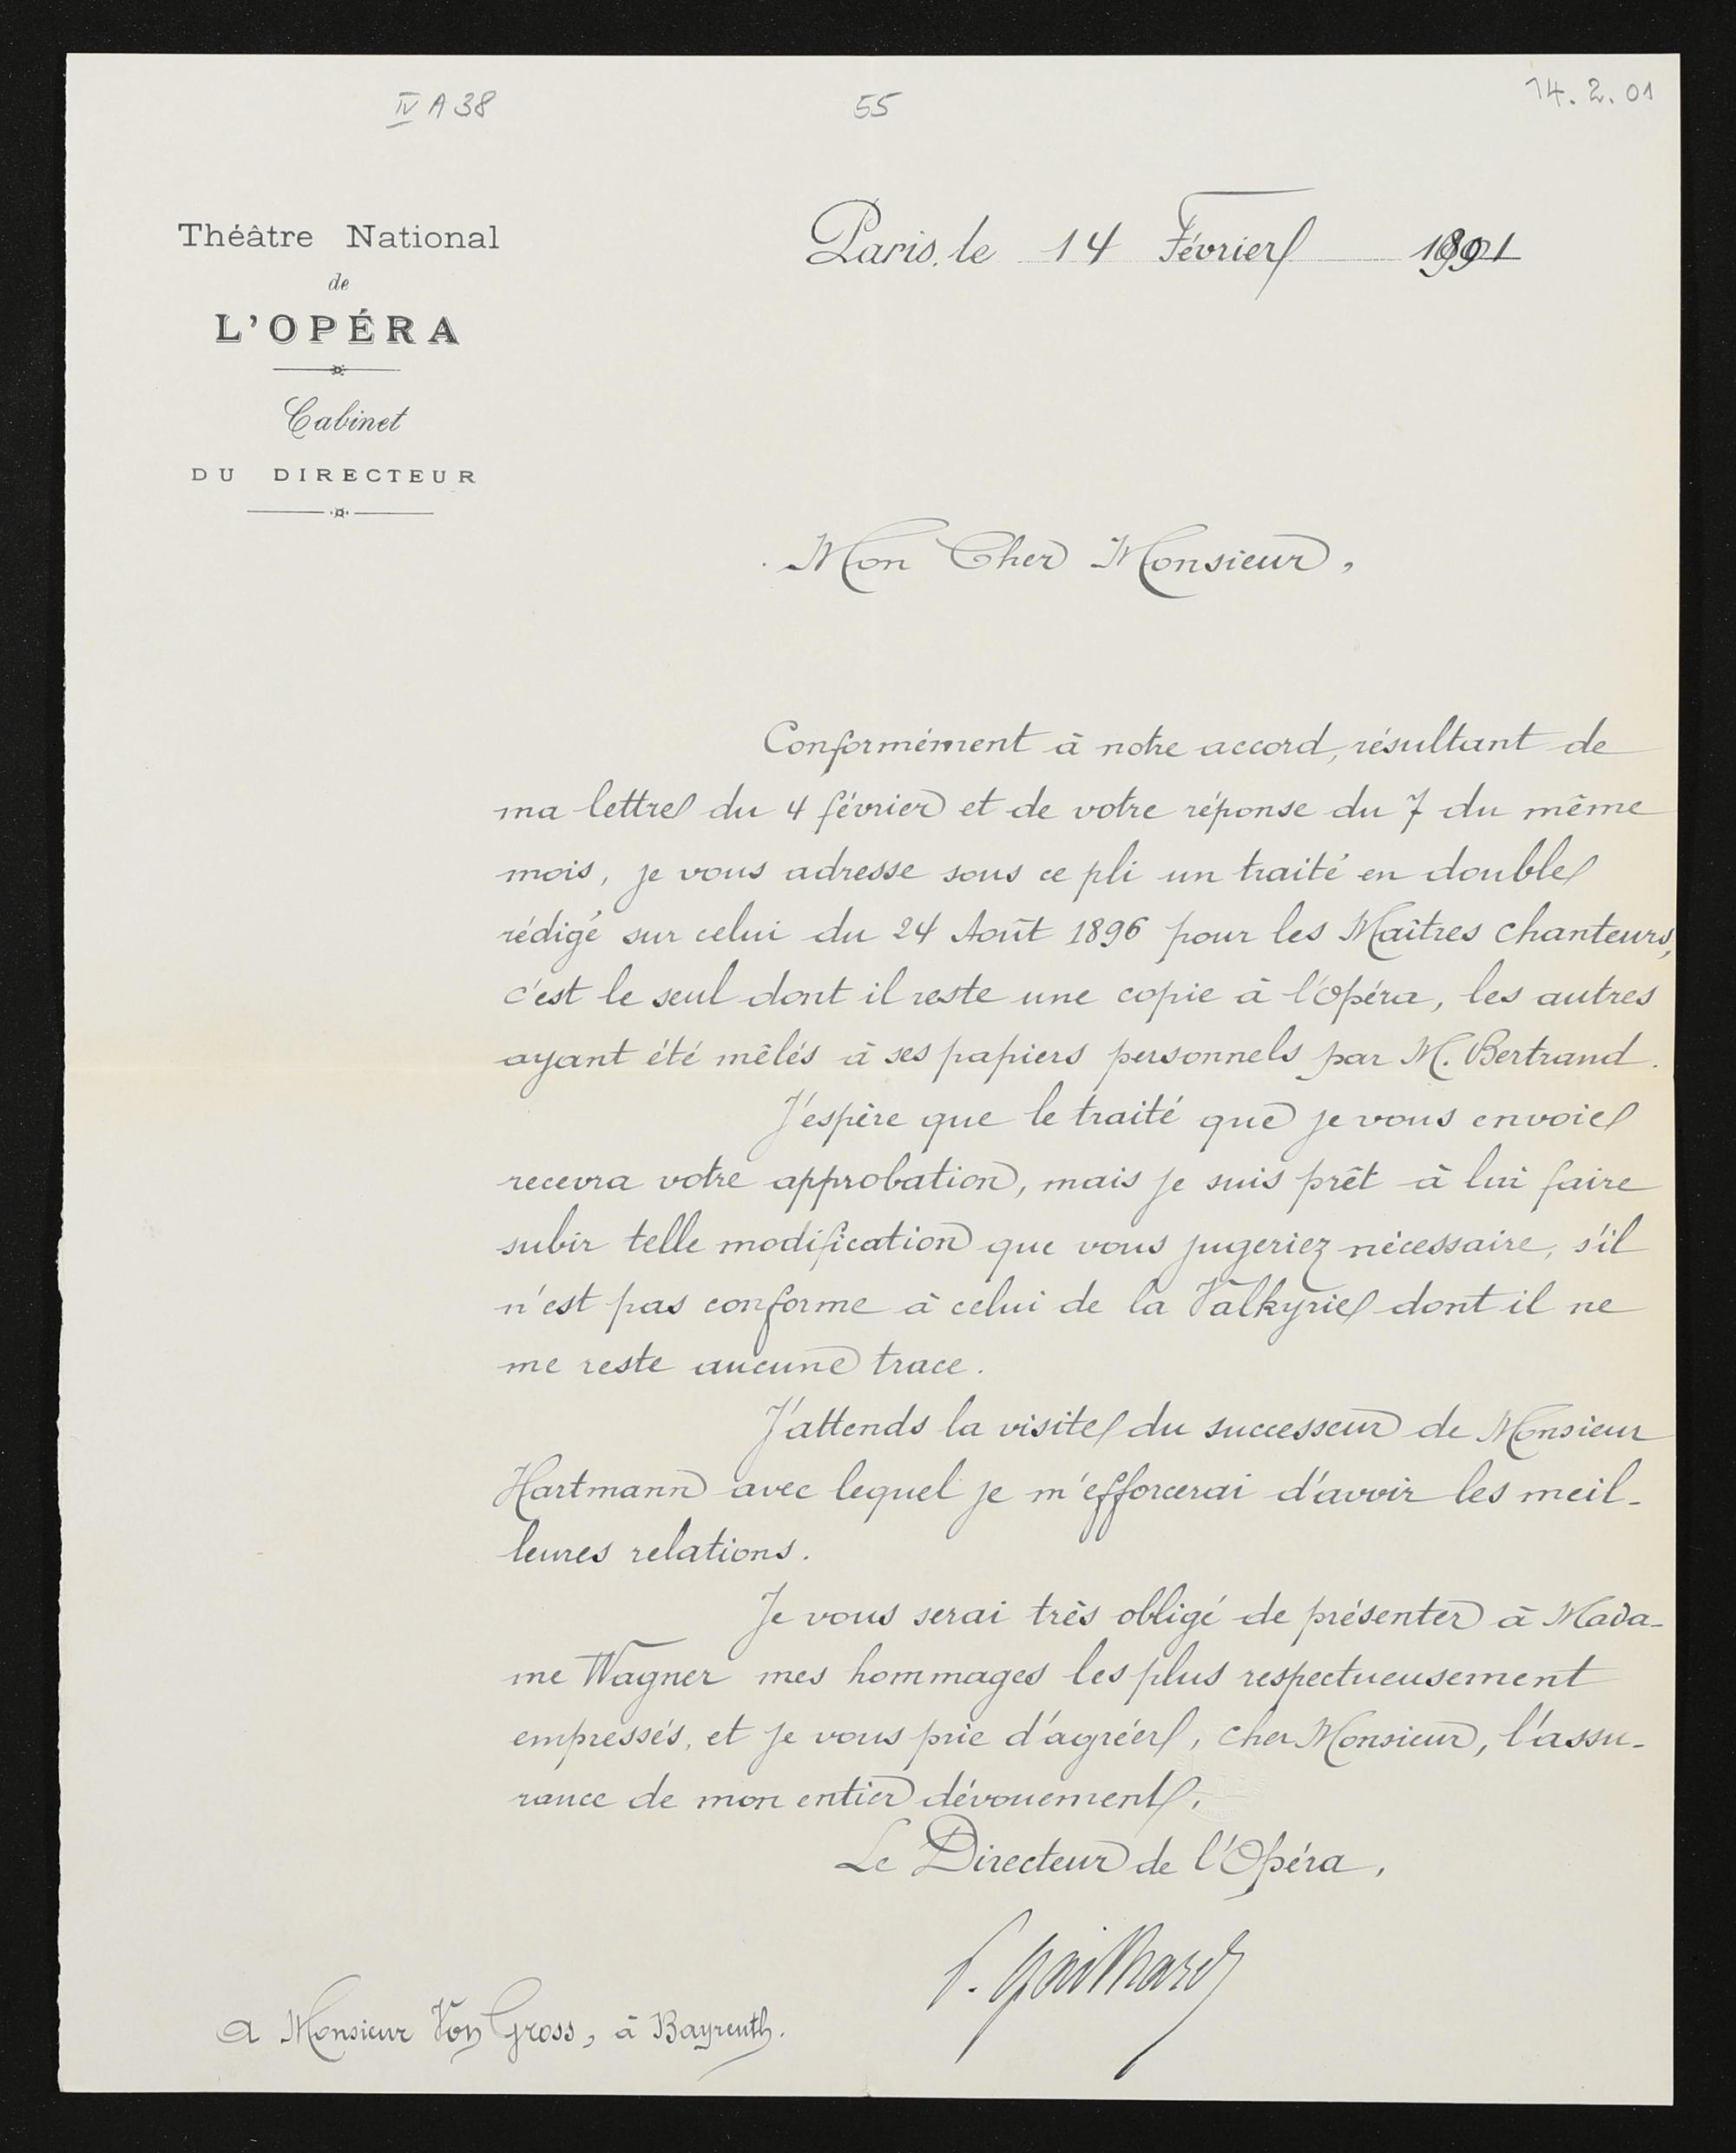 IV A 38
55
14. 2. 01
Théâtre National
de
L'OPÉRA
Cabinet
DU DIRECTEUR
Paris, le 14 Février 1901
Mon Cher Monsieur,
Conformément à notre accord, résultant de
ma lettre du 4 février et de votre réponse du 7 du même
mois, je vous adresse sous ce pli un traité en double
rédigé sur celui du 24 Août 1896 pour les Maîtres chanteurs,
c'est le seul dont il reste une copie à l'Opéra, les autres
ayant été mêlés à ses papiers personnels par M. Bertrand.
J'espère que le traité que je vous envoie
recevra votre approbation, mais je suis prêt à lui faire
subir telle modification que vous jugeriez nécessaire, s'il
n'est pas conforme à celui de la Valkyrie dont il ne
me reste aucune trace.
J'attends la visite du successeur de Monsieur
Hartmann avec lequel je m'efforcerai d'avoir les meil-
leures relations.
Je vous serai très obligé de présenter à Mada-
me Wagner mes hommages les plus respectueusement
empressés, et je vous prie d'agréer, cher Monsieur, l'assu-
rance de mon entier dévouement.
Le Directeur de l'Opéra,
P. Gailhard
A Monsieur Von Gross, à Bayreuth.